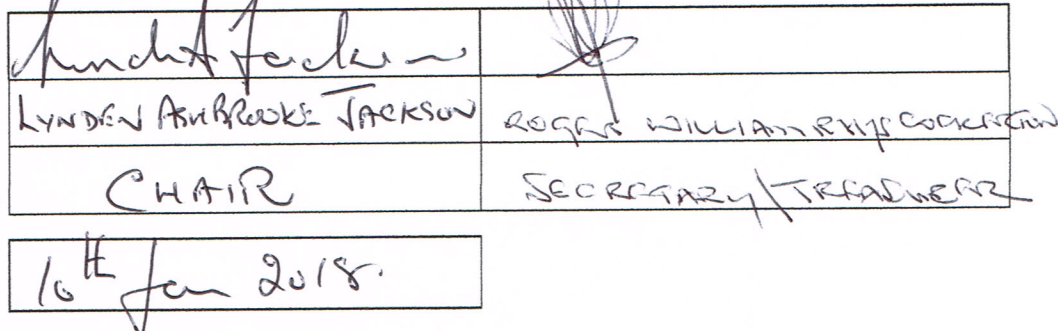 LYNDEN ASHBROOKE JACKSON
ROGER WILLIAM RHYS COCKERTON
CHAIR
SECRETARY/TREASURER
10th Jan 2018.